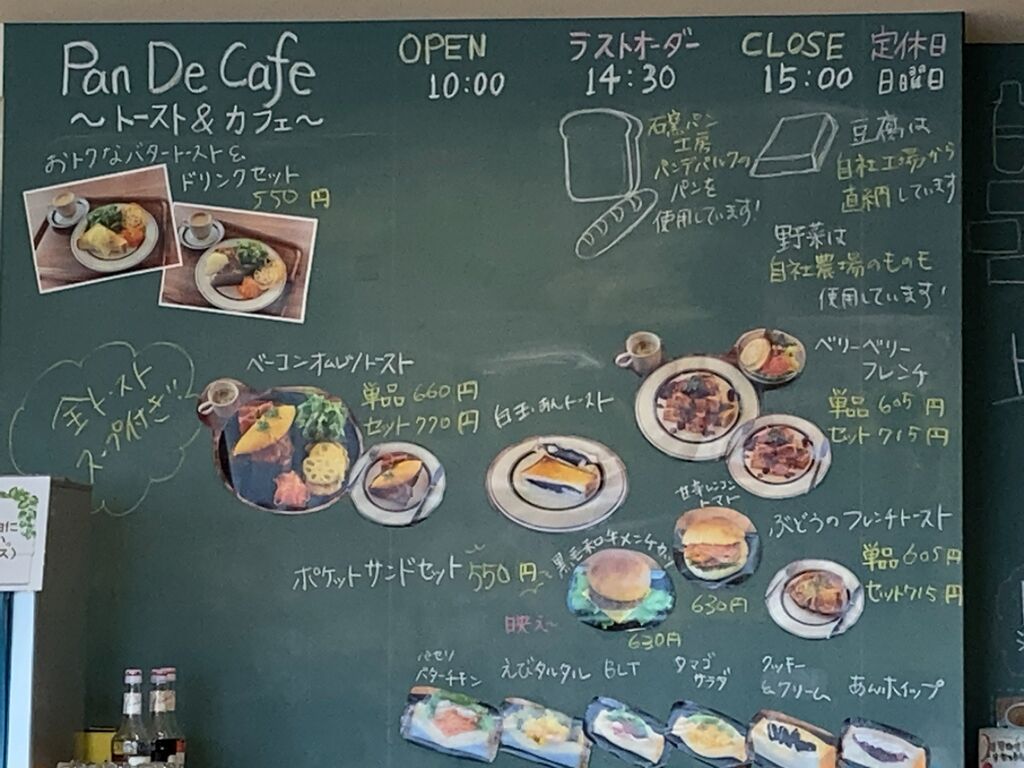 Pan De Cafe
～トースト&カフェ～
OPEN
10:00
ラストオーダー
14:30
CLOSE
15:00
定休日
日曜日
おトクなバタートースト&
ドリンクセット
550円
石窯パン
工房
パンデパルクの
パンを
使用しています!
豆腐は
自社工場から
直納しています
野菜は
自社農場のものも
使用しています!
全トースト
スープ付き!!
ベーコンオムレツトースト
単品 660円
セット 770円
白玉あんトースト
ベリーベリー
フレンチ
単品 605円
セット 715円
ポケットサンドセット 550円～
黒毛和牛メンチカツ
映え～
630円
トマト
630円
ぶどうのフレンチトースト
単品 605円
セット 715円
パセリ
バターチキン
えびタルタル
BLT
タマゴ
サラダ
クッキー
&クリーム
あんホイップ